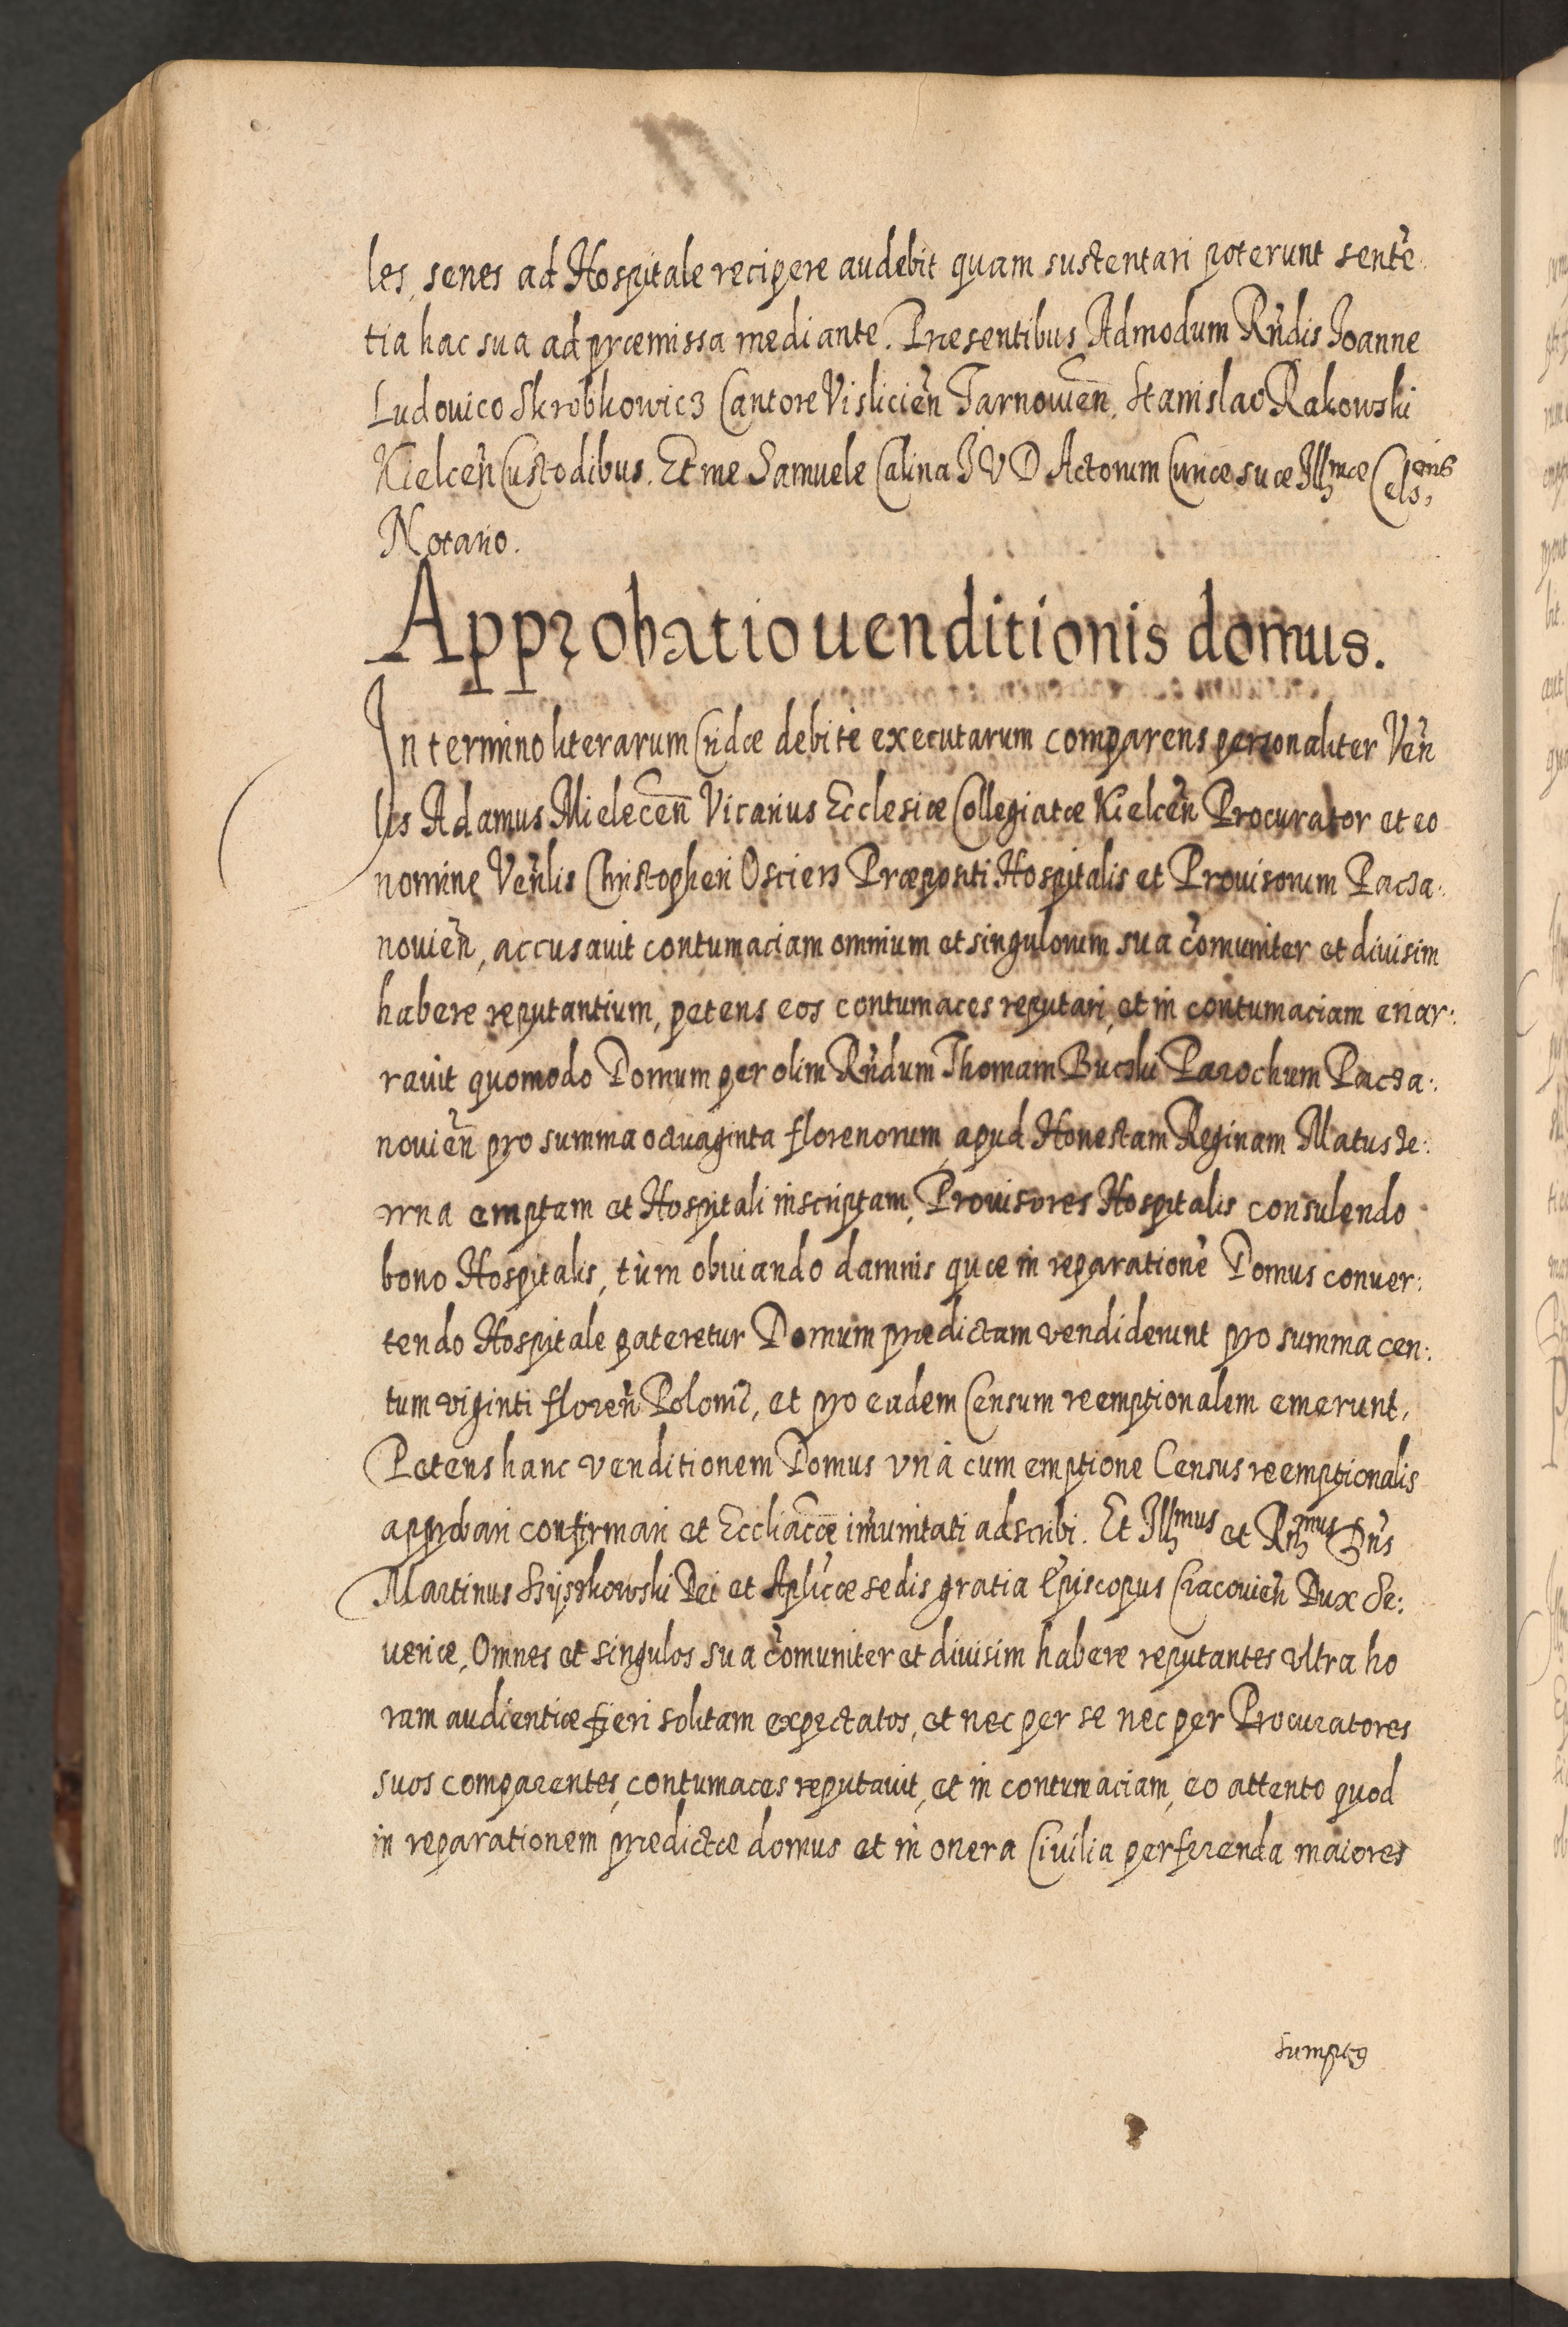 les, senes ad Hospitale recipere audebit quam sustentari poterunt sentē
tia hac sua ad præmissa mediante. Præsentibus Admodum Rñdis Joanne
Ludouico Skrobkowicz Cantore Vislicień Tarnouień, Stanislao Rakowski
Kielceñ Custodibus. Et me Samuele Calina J V D Actorum Curiæ suæ Illmæ Cels:nis
Notario.
Approbatio uenditionis domus.
In termino literarum Cridæ debitè executarum comparens personaliter Veñ
lis Adamus Mieleceñ Vicarius Ecclesiæ Collegiatæ Kielceñ Procurator et eo
nomine Veñlis Christopheri Osciers Præpositi Hospitalis et Prouisorum Pacza:
nouieñ, accusauit contumaciam omnium et singulorum sua cõmuniter et diuisim
habere reputantium, petens eos contumaces reputari, et in contumaciam enar:
rauit quomodo Domum per olim Rñdum Thomam Buczki Parochum Pacza:
nouieñ pro summa octuaginta florenorum apud Honestam Reginam Matusze:
wna emptam et Hospitali inscriptam, Prouisores Hospitalis consulendo
bono Hospitalis, tùm obuiando damnis quæ in reparationē Domus conuer:
tendo Hospitale pateretur Domum prædictam vendiderunt pro summa cen:
tum viginti floreñ Polonic̃, et pro eadem Censum reemptionalem emerunt,
Petens hanc venditionem Domus vnà cum emptione Census reemptionalis
approbari confirmari et Eccliacæ imũnitati adscribi. Et Illmus et Rñmus Dñs
Martinus Szyszkowski Dei et Aplicæ sedis gratia Episcopus Cracouień Dux Se:
ueriæ, Omnes et singulos sua cõmuniter et diuisim habere reputantes vltra ho
ram audientiæ fieri solitam expectatos, et nec per se nec per Procuratores
suos comparentes, contumaces reputauit, et in contumaciam, eo attento quod
in reparationem prædictæ domus et in onera Ciuilia perferenda maiores
sumptꝯ